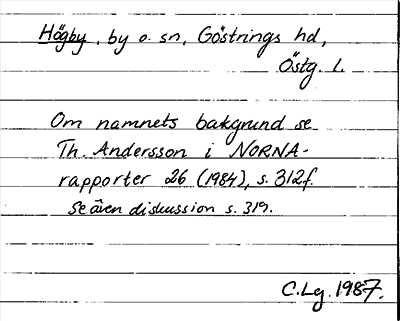 Högby. by o. sn, Göstrings hd,
Östg. l.
Om namnets bakgrund se
Th. Andersson i NORNA-
rapporter 26 (1984), s. 312f.
Se även diskussion s. 319.
C.Lg. 1987.